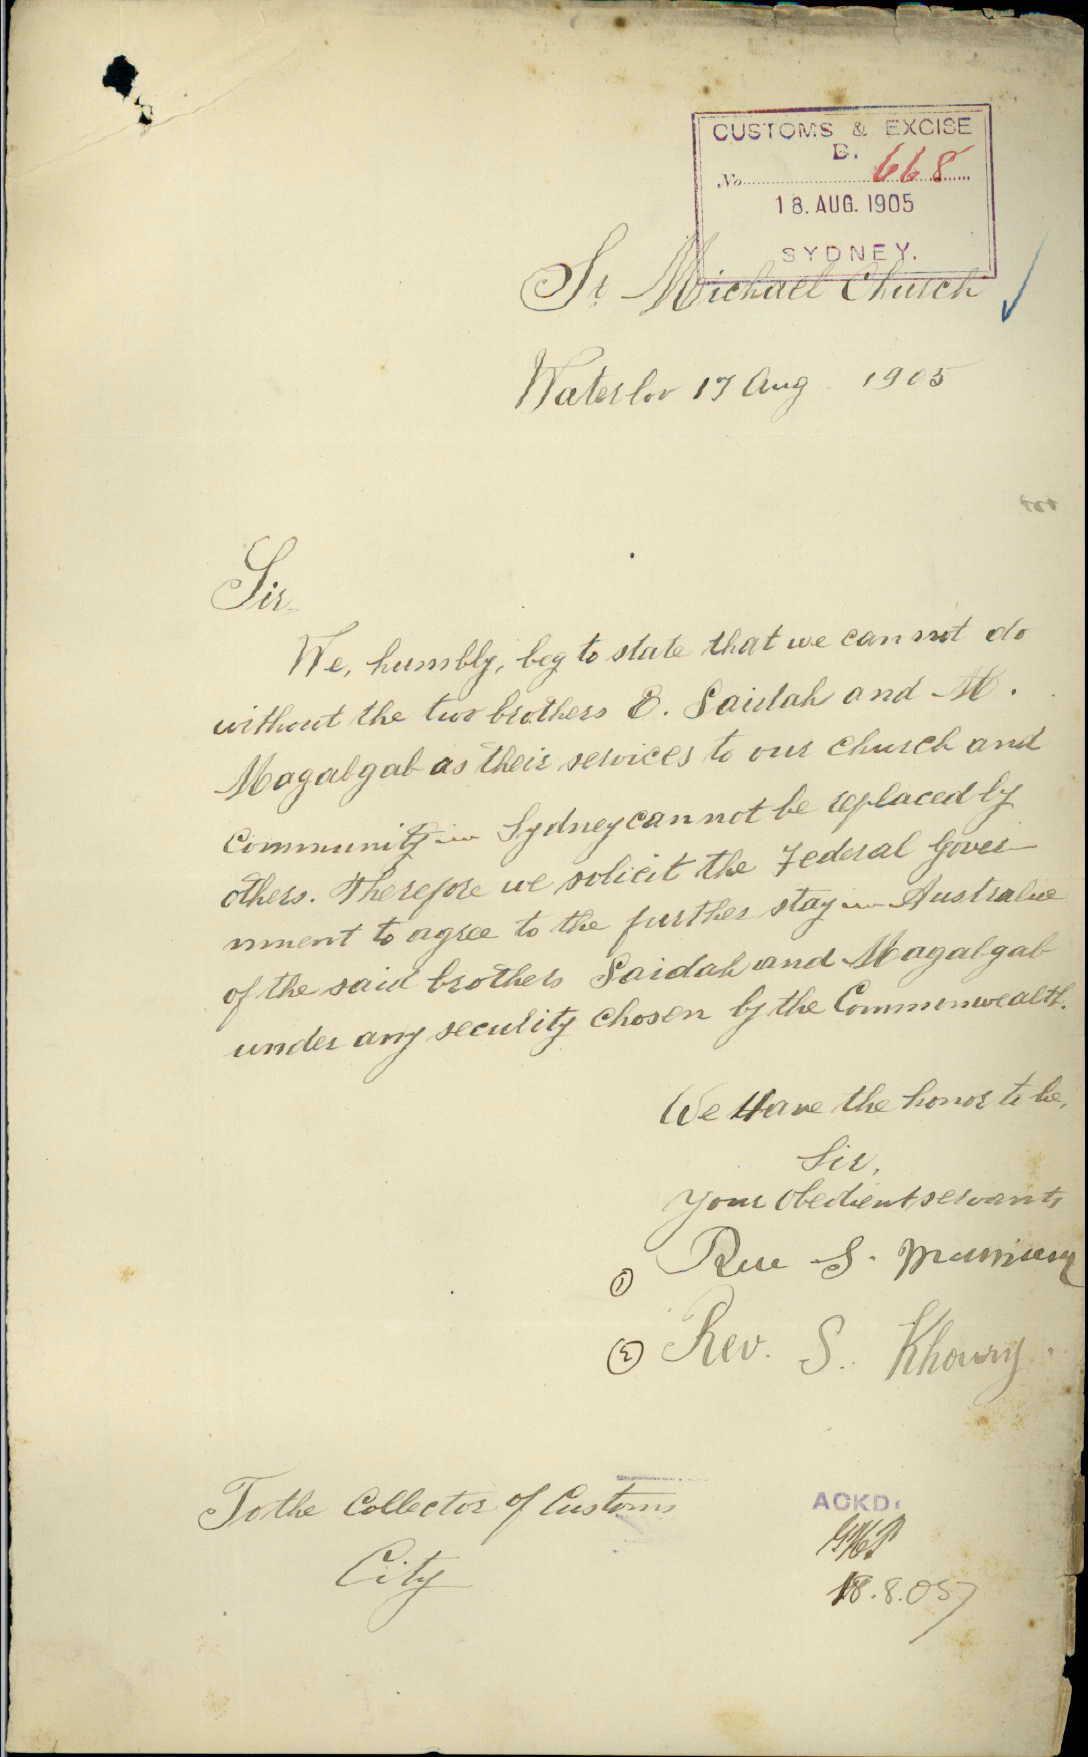 CUSTOMS & EXCISE
B.
No. 668
18. AUG. 1905
SYDNEY.
St Michael Church
Waterloo 17 Aug 1905
Sir
We, humbly, beg to state that we can not do
without the two brothers E. Saidah and M.
Magalgab as their services to our church and
Community in Sydney can not be replaced by
others. Therefore we solicit the Federal Gover-
nment to agree to the further stay in Australia
of the said brothers Saidah and Magalgab
under any security chosen by the Commonwealth.
We Have the honor to be,
Sir,
Your Obedient servants
(1) Rev S.
(2) Rev. S. Khoury.
To the Collector of Customs
City
ACKD.
18.8.05